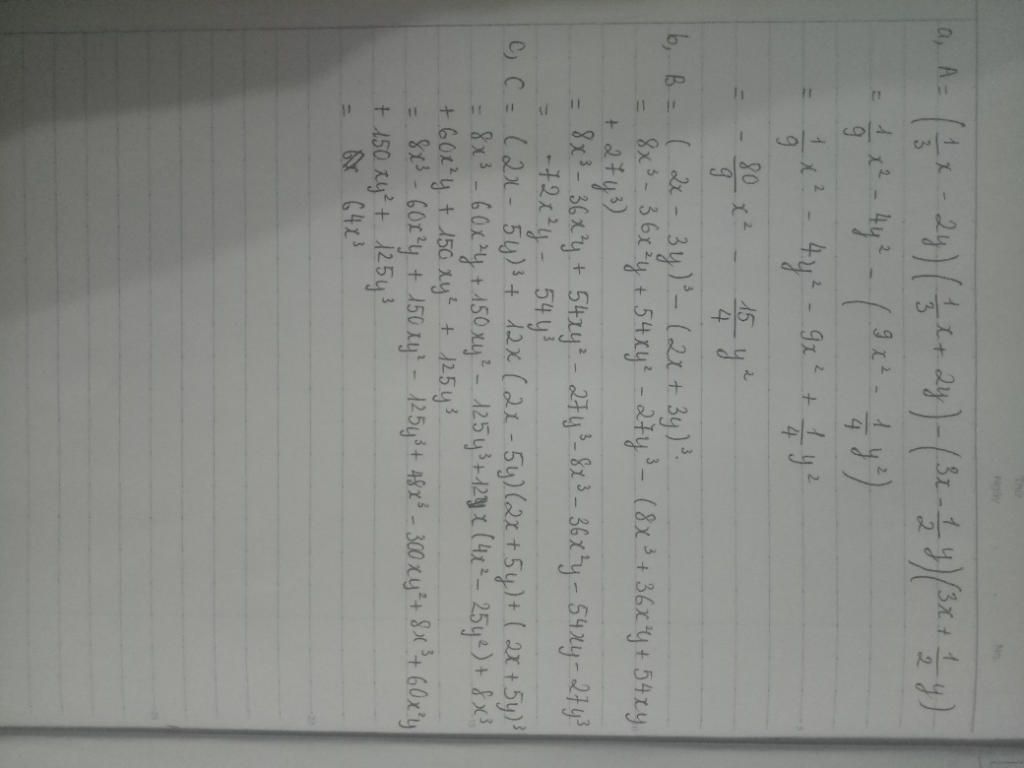 No.
a, A = (1/3 x - 2y)(1/3 x + 2y) - (3x - 1/2 y)(3x + 1/2 y)
= 1/9 x² - 4y² - (9x² - 1/4 y²)
= 1/9 x² - 4y² - 9x² + 1/4 y²
= - 80/9 x² - 15/4 y²
b, B = (2x - 3y)³ - (2x + 3y)³.
= 8x³ - 36x²y + 54xy² - 27y³ - (8x³ + 36x²y + 54xy
+ 27y³)
= 8x³ - 36x²y + 54xy² - 27y³ - 8x³ - 36x²y - 54xy - 27y³
= -72x²y - 54y³
c, C = (2x - 5y)³ + 12x(2x - 5y)(2x + 5y) + (2x + 5y)³
= 8x³ - 60x²y + 150xy² - 125y³ + 12x(4x² - 25y²) + 8x³
+ 60x²y + 150xy² + 125y³
= 8x³ - 60x²y + 150xy² - 125y³ + 48x³ - 300xy² + 8x³ + 60x²y
+ 150xy² + 125y³
= 64x³